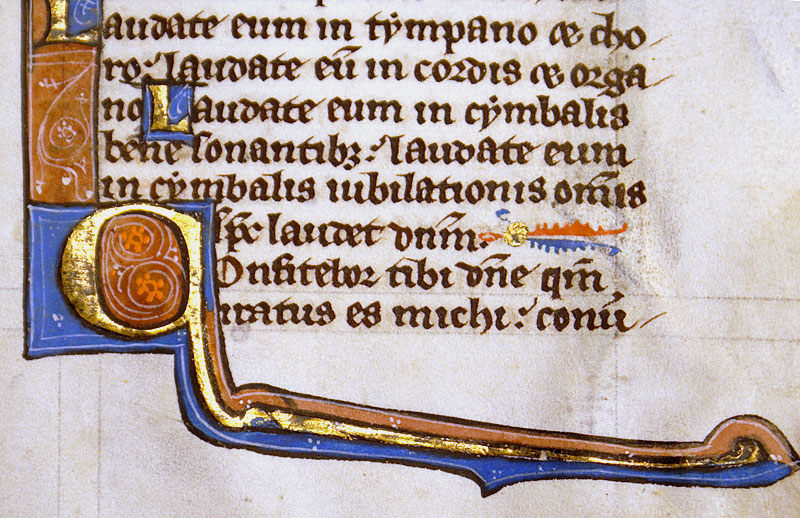 Laudate eum in tympano ⁊ cho
ro. laudate eū in cordis ⁊ orga
no Laudate eum in cymbalis
bene sonantibꝫ. laudate eum
in cymbalis iubilationis om̄is
sp̄c laudet dn̄m.
Confitebor tibi dn̄e qm̄
iratus es michi. conū